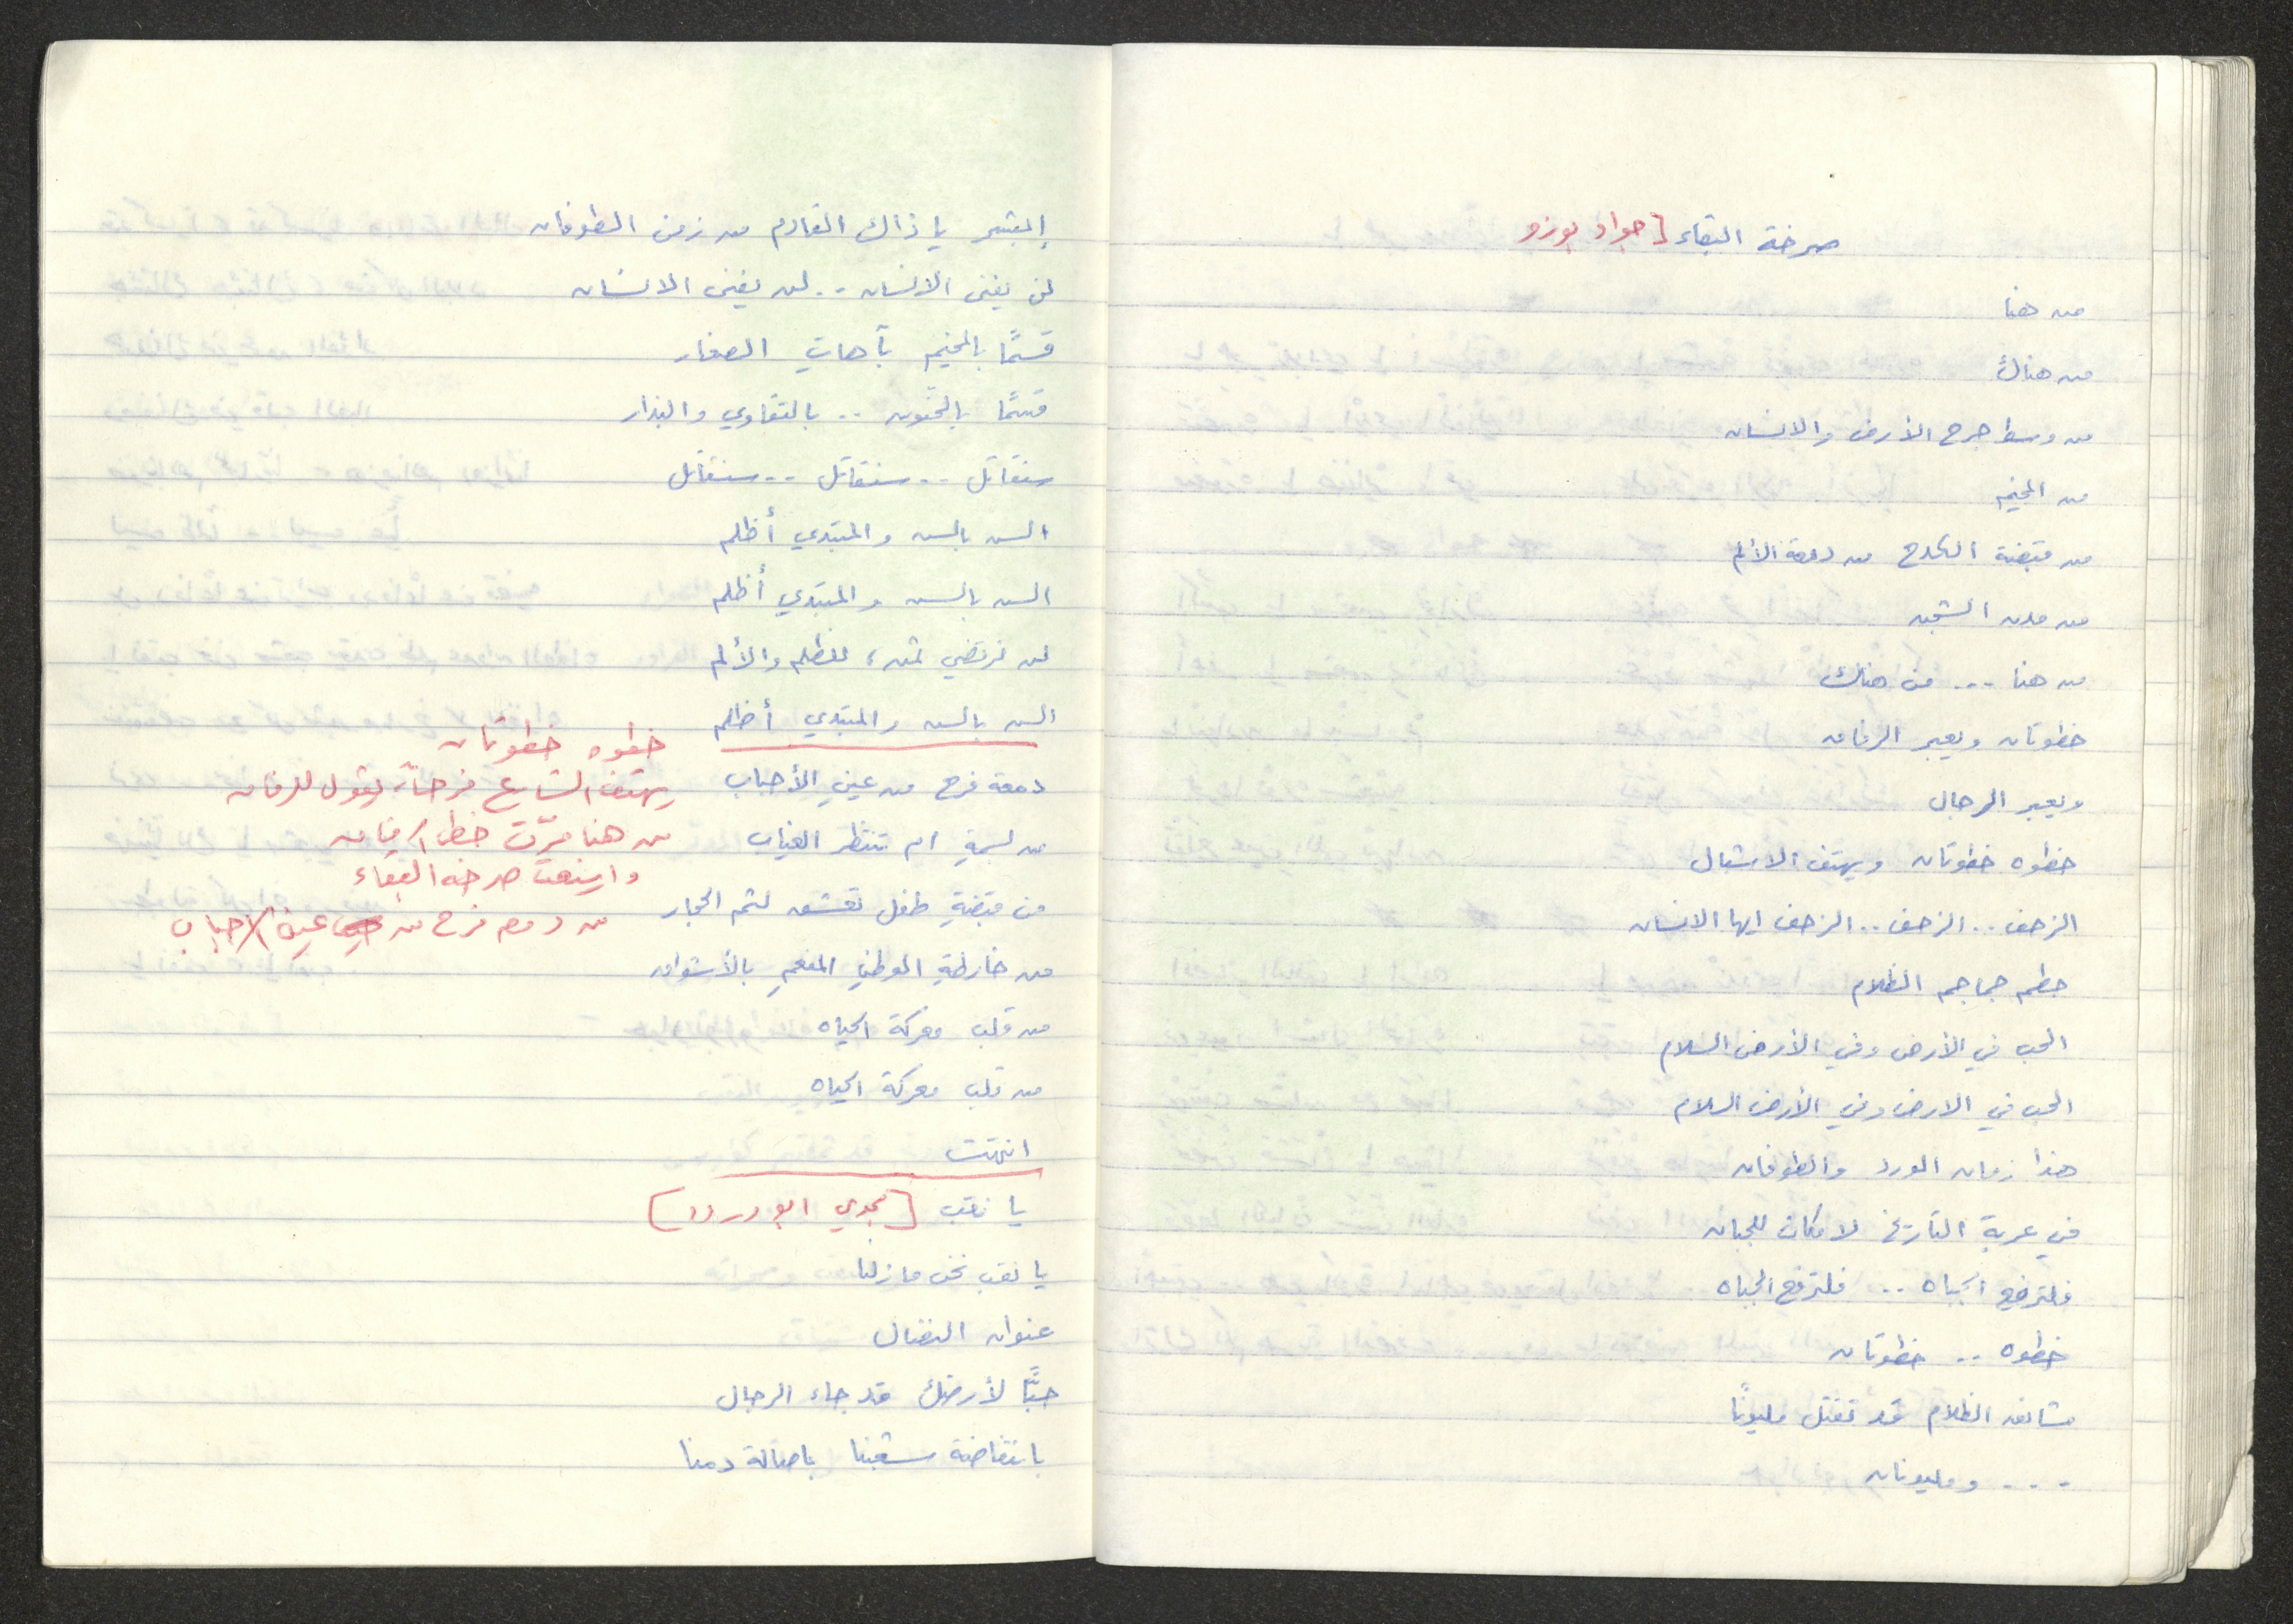 صرخة البقاء [جواد بوزو
من هنا
من هناك
من وسط جرح الأرض والانسان
من المخيم
من قبضة الكدح من دمعة الألم
من مدن الشجن
من هنا ... من هناك
خطوتان ويعبر الرفاق
ويعبر الرجال
خطوه خطوتان ويهتف الاشبال
الزحف .. الزحف .. الزحف ايها الانسان
حطم جماجم الظلام
الحب في الأرض وفي الأرض السلام
الحب في الارض وفي الأرض السلام
هذا زمان الورد والطوفان
في عربة التاريخ لا مكان للجبان
فلترفع الجباه .. فلترفع الجباه
خطوه .. خطوتان
مشانق الظلام قد تقتل مليونًا
... ومليونان
إبتسم يا ذاك القادم من زمن الطوفان
لن يفنى الانسان .. لن يفنى الانسان
قسمًا بالمخيم بآهاتِ الصغار
قسمًا بالحنّون .. بالتقاوي والبذار
سنقاتل .. سنقاتل .. سنقاتل
السن بالسن والمبتدي أظلم
السن بالسن والمبتدي أظلم
لن نرتضي للظلم والألم
السن بالسن والمبتدي أظلم
خطوه خطوتان
دمعة فرح من عينِ الأحباب
يهتف الشارع فرحاً، يقول للرفاق
من بسمةِ ام تنتظر الغياب
من هنا مرّت خطى الرفاق
وارتفعت صرخة البقاء
من قبضةِ طفل تعشق لثم الحجار
من دمع فرح من عين الاحباب
من خارطةِ الوطنِ المفعمِ بالأشواق
من قلب معركة الحياه
من قلب معركة الحياه
انتهت
يا نقب [مجدي ابو دردد]
يا نقب نحن ما زلنا
عنوان النضال
حبًّا لأرضك قد جاء الرجال
بانتفاضة شعبنا باصالة دمنا